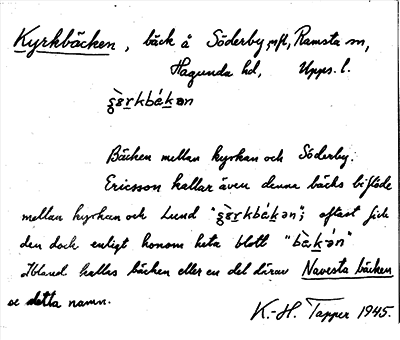 Kyrkbäcken, bäck å Söderby, mfl, Ramsta sn,
Hagunda hd, Upps. l.
Bäcken mellan kyrkan och Söderby.
Ericsson kallar även denna bäcks biflöde
mellan kyrkan och Lund "; oftast fick
den dock enligt honom heta blott "
Ibland kallas bäcken eller en del därav Navesta bäcken
se detta namn.
K.-H. Tapper 1945.